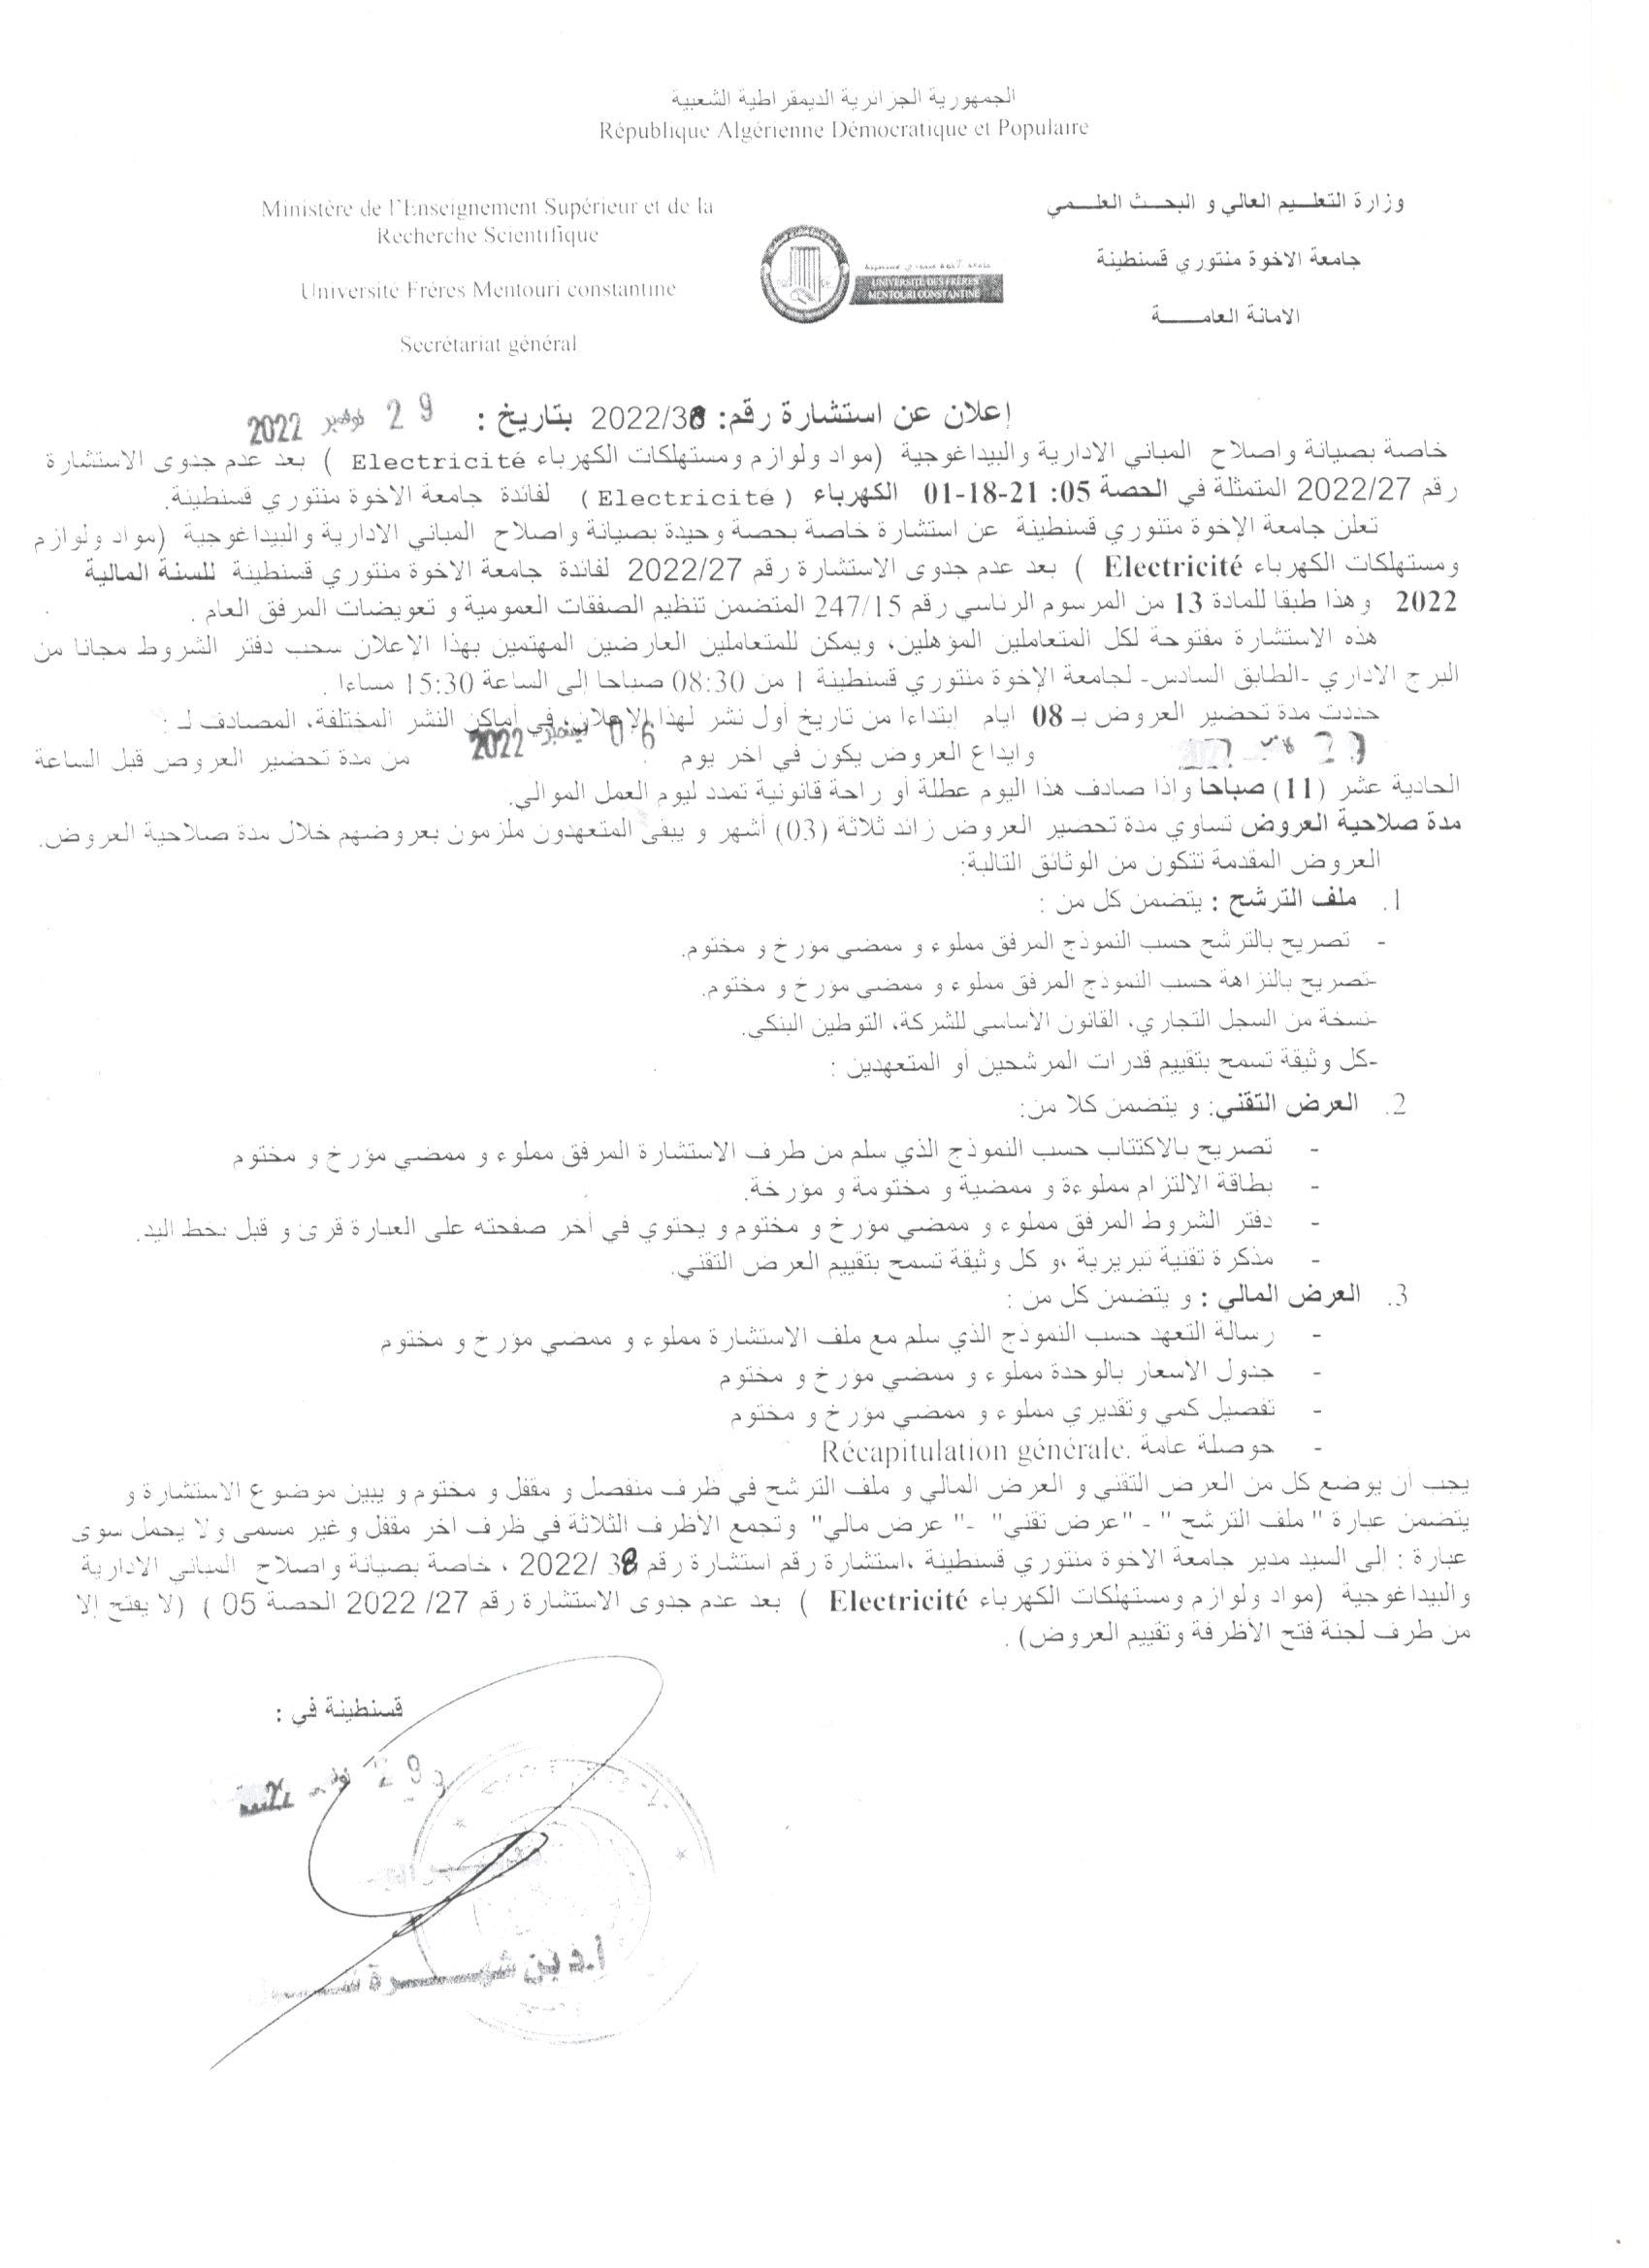 الجمهورية الجزائرية الديمقراطية الشعبية
République Algérienne Démocratique et Populaire
Ministère de l'Enseignement Supérieur et de la
Recherche Scientifique
Université Fréres Mentouri constantine
Secrétariat général
UNIVERSITÉ DES FRÈRES
MENTOURI CONSTANTINE
وزارة التعليم العالي و البحث العلمي
جامعة الاخوة منتوري قسنطينة
الامانة العامة
إعلان عن استشارة رقم: 2022/38 بتاريخ : 29 نوفمبر 2022
خاصة بصيانة واصلاح المباني الادارية والبيداغوجية (مواد ولوازم ومستهلكات الكهرباء Electricité ) بعد عدم جدوى الاستشارة
رقم 2022/27 المتمثلة في الحصة 05: 21-18-01 الكهرباء ( Electricité ) لفائدة جامعة الاخوة منتوري قسنطينة.
تعلن جامعة الإخوة منتوري قسنطينة عن استشارة خاصة بحصة وحيدة بصيانة واصلاح المباني الادارية والبيداغوجية (مواد ولوازم
ومستهلكات الكهرباء Electricité ) بعد عدم جدوى الاستشارة رقم 2022/27 لفائدة جامعة الاخوة منتوري قسنطينة للسنة المالية
2022 وهذا طبقا للمادة 13 من المرسوم الرئاسي رقم 247/15 المتضمن تنظيم الصفقات العمومية و تعويضات المرفق العام .
هذه الاستشارة مفتوحة لكل المتعاملين المؤهلين، ويمكن للمتعاملين العارضين المهتمين بهذا الإعلان سحب دفتر الشروط مجانا من
البرج الاداري -الطابق السادس- لجامعة الإخوة منتوري قسنطينة 1 من 08:30 صباحا إلى الساعة 15:30 مساءا .
حددت مدة تحضير العروض بـ 08 ايام إبتداءا من تاريخ أول نشر لهذا الإعلان في أماكن النشر المختلفة، المصادف لـ :
29 وايداع العروض يكون في اخر يوم 06 ديسمبر 2022 من مدة تحضير العروض قبل الساعة
الحادية عشر (11) صباحا واذا صادف هذا اليوم عطلة أو راحة قانونية تمدد ليوم العمل الموالي.
مدة صلاحية العروض تساوي مدة تحضير العروض زائد ثلاثة (03) أشهر و يبقى المتعهدون ملزمون بعروضهم خلال مدة صلاحية العروض.
العروض المقدمة تتكون من الوثائق التالية:
1. ملف الترشح : يتضمن كل من :
- تصريح بالترشح حسب النموذج المرفق مملوء و ممضي مؤرخ و مختوم.
-تصريح بالنزاهة حسب النموذج المرفق مملوء و ممضي مؤرخ و مختوم.
-نسخة من السجل التجاري، القانون الأساسي للشركة، التوطين البنكي.
-كل وثيقة تسمح بتقييم قدرات المرشحين أو المتعهدين :
2. العرض التقني: و يتضمن كلا من:
- تصريح بالاكتتاب حسب النموذج الذي سلم من طرف الاستشارة المرفق مملوء و ممضي مؤرخ و مختوم
- بطاقة الالتزام مملوءة و ممضية و مختومة و مؤرخة.
- دفتر الشروط المرفق مملوء و ممضي مؤرخ و مختوم و يحتوي في أخر صفحته على العبارة قرئ و قبل بخط اليد.
- مذكرة تقنية تبريرية ،و كل وثيقة تسمح بتقييم العرض التقني.
3. العرض المالي : و يتضمن كل من :
- رسالة التعهد حسب النموذج الذي سلم مع ملف الاستشارة مملوء و ممضي مؤرخ و مختوم
- جدول الأسعار بالوحدة مملوء و ممضي مؤرخ و مختوم
- تفصيل كمي وتقديري مملوء و ممضي مؤرخ و مختوم
- حوصلة عامة .Récapitulation générale
يجب أن يوضع كل من العرض التقني و العرض المالي و ملف الترشح في ظرف منفصل و مقفل و مختوم و يبين موضوع الاستشارة و
يتضمن عبارة " ملف الترشح " - "عرض تقني" -" عرض مالي" وتجمع الأظرف الثلاثة في ظرف اخر مقفل وغير مسمى ولا يحمل سوى
عبارة : إلى السيد مدير جامعة الاخوة منتوري قسنطينة ،استشارة رقم استشارة رقم 38 /2022 ، خاصة بصيانة واصلاح المباني الادارية
والبيداغوجية (مواد ولوازم ومستهلكات الكهرباء Electricité ) بعد عدم جدوى الاستشارة رقم 27/ 2022 الحصة 05 ) (لا يفتح إلا
من طرف لجنة فتح الأظرفة وتقييم العروض) .
قسنطينة في :
29
ا.د بن شهرة